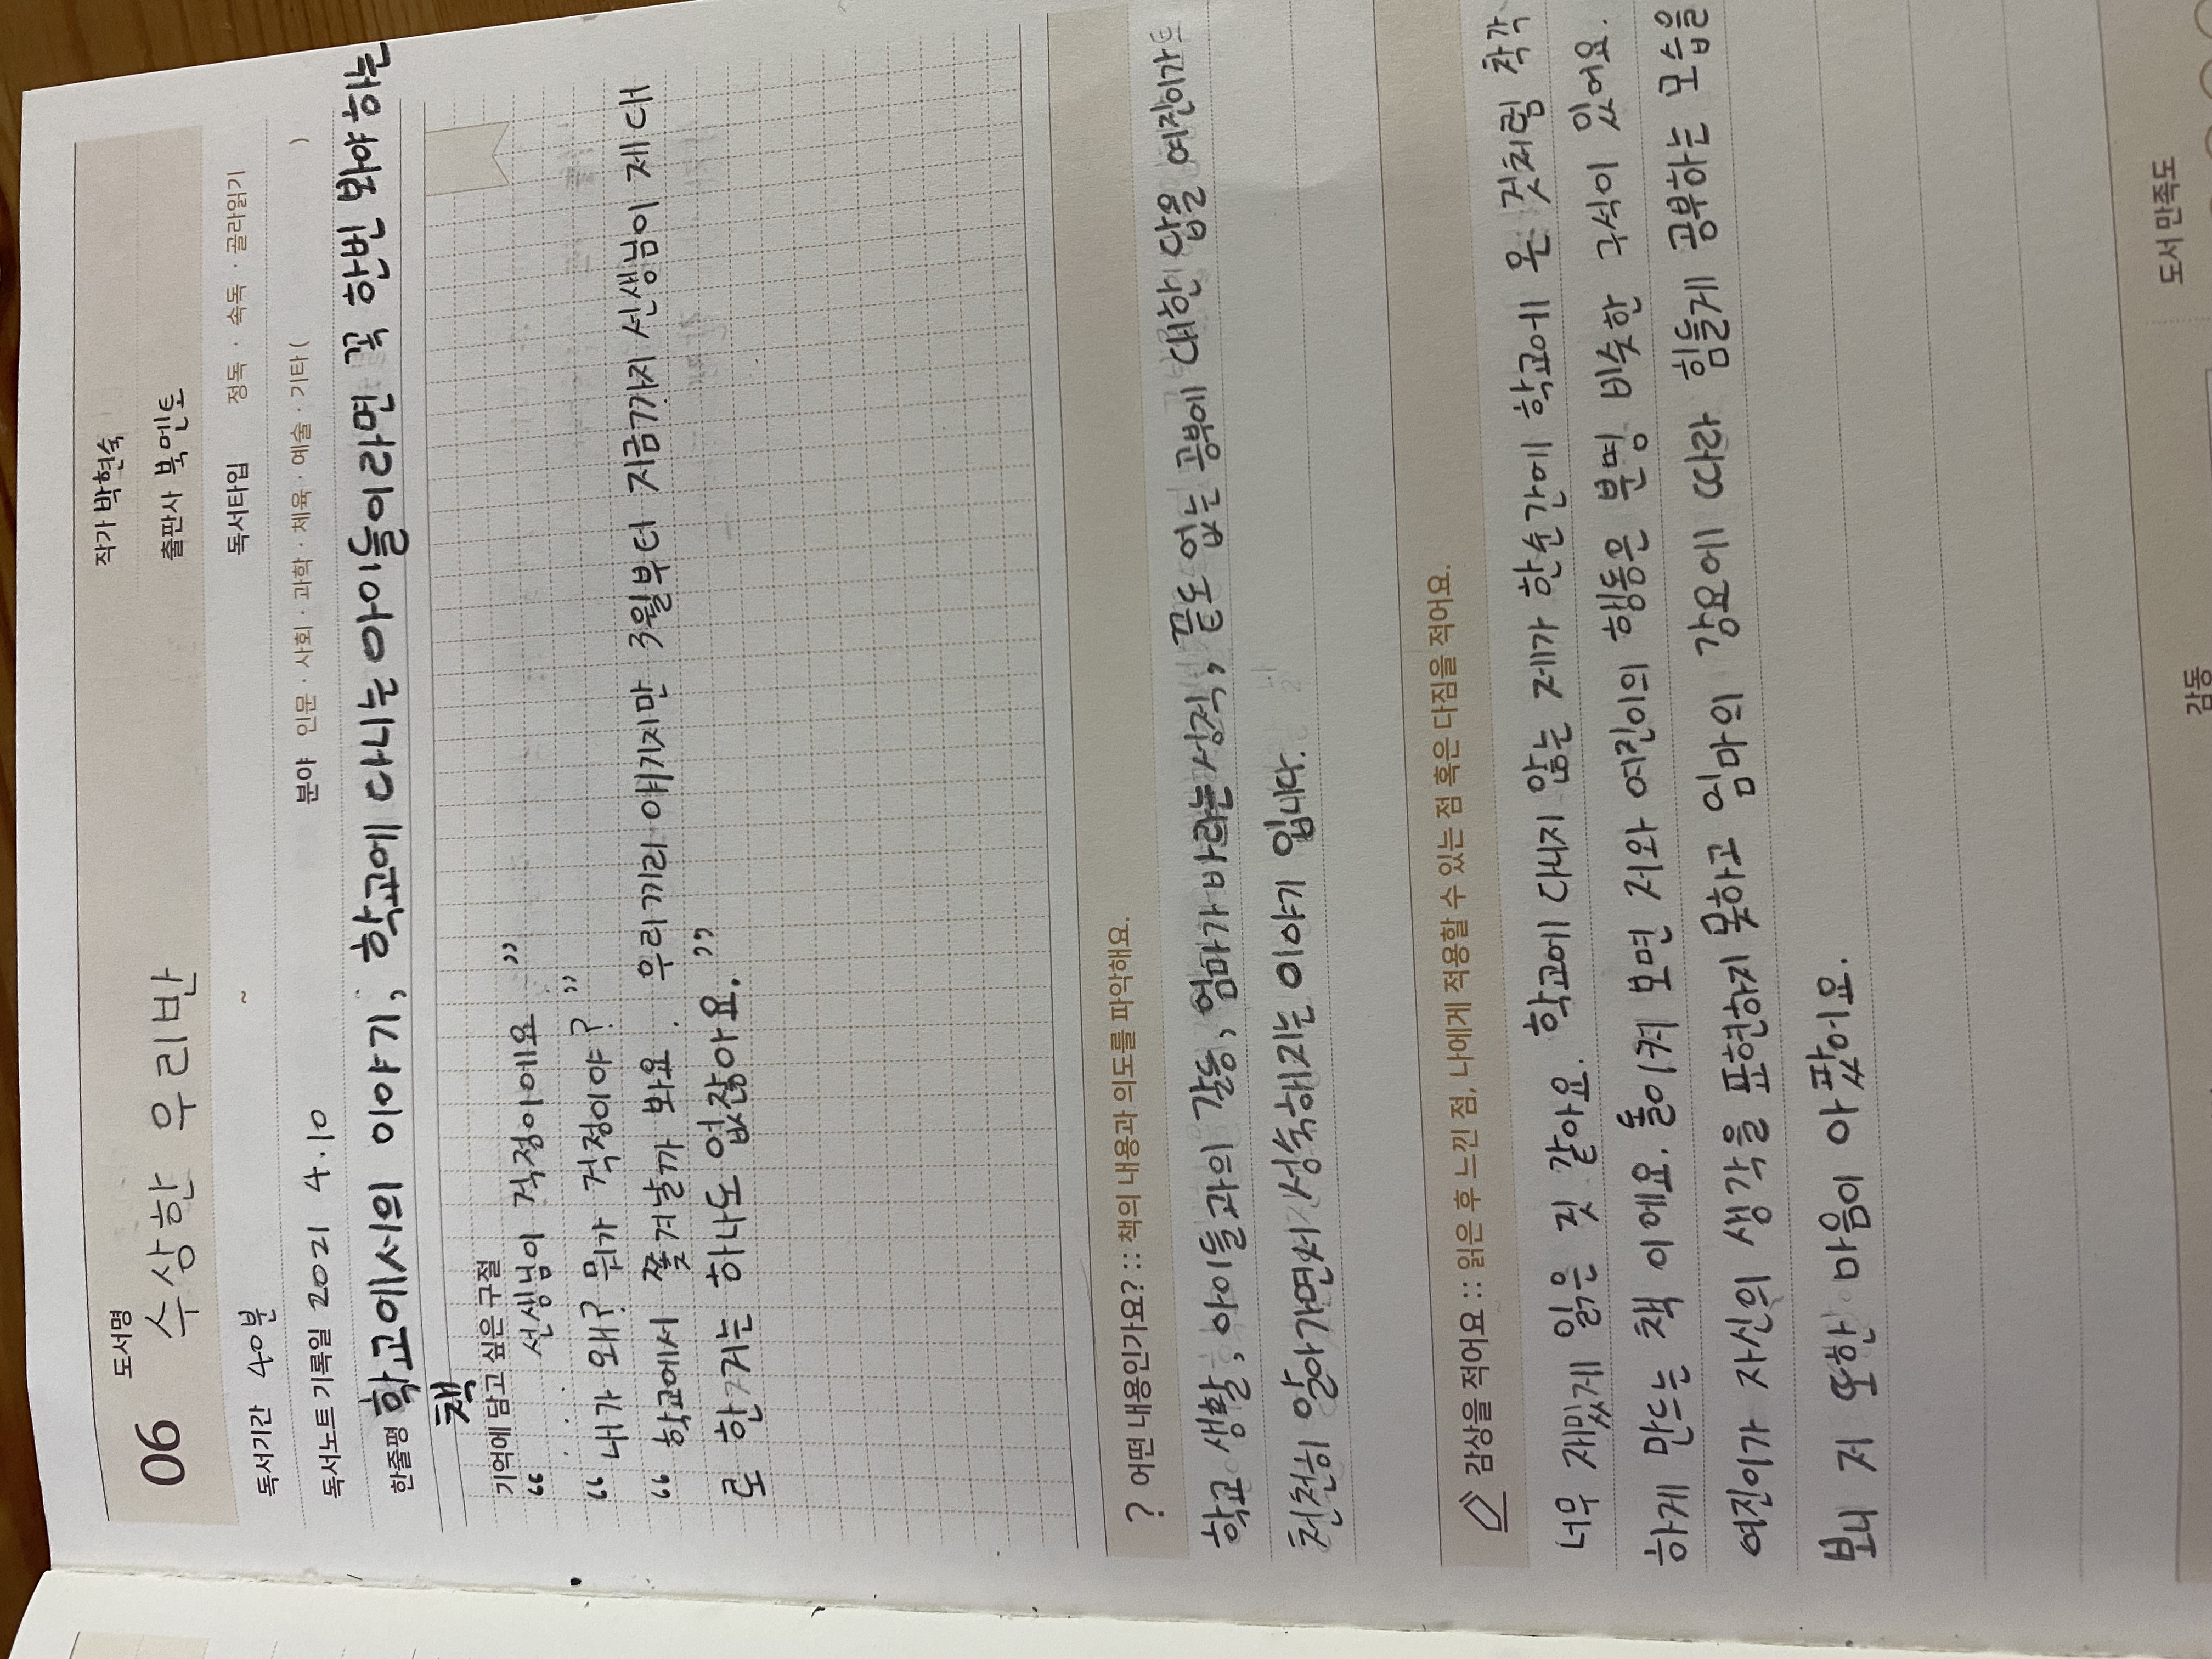 06
도서명
수상한 우리반
작가 박현숙
출판사 북멘토
독서기간 40분 ~
독서타입 정독 · 속독 · 골라읽기
독서노트 기록일 2021 4.10
분야 인문 · 사회 · 과학 · 체육 · 예술 · 기타 ( )
한줄평 학교에서의 이야기, 학교에 다니는 아이들이라면 꼭 한번 봐야 하는
책
기억에 담고 싶은 구절
“ ... 선생님이 걱정이에요 ”
“ 내가 왜? 뭐가 걱정이야? ”
“ 학교에서 쫓겨날까 봐요. 우리끼리 얘기지만 3월부터 지금까지 선생님이 제대
로 한 거는 하나도 없잖아요. ”
? 어떤 내용인가요? :: 책의 내용과 의도를 파악해요.
학교 생활, 아이들과의 갈등, 엄마가 바라는 성적, 끝도 없는 공부에 대한 답을 여진이가
천천히 알아가면서 성숙해지는 이야기 입니다.
감상을 적어요 :: 읽은 후 느낀 점, 나에게 적용할 수 있는 점 혹은 다짐을 적어요.
너무 재밌게 읽은 것 같아요. 학교에 다니지 않는 제가 한순간에 학교에 온 것처럼 착각
하게 만드는 책 이에요. 돌이켜 보면 저와 여진이의 행동은 분명 비슷한 구석이 있어요.
여진이가 자신의 생각을 표현하지 못하고 엄마의 강요에 따라 힘들게 공부하는 모습을
보니 저 또한 마음이 아팠어요.
감동
도서 만족도